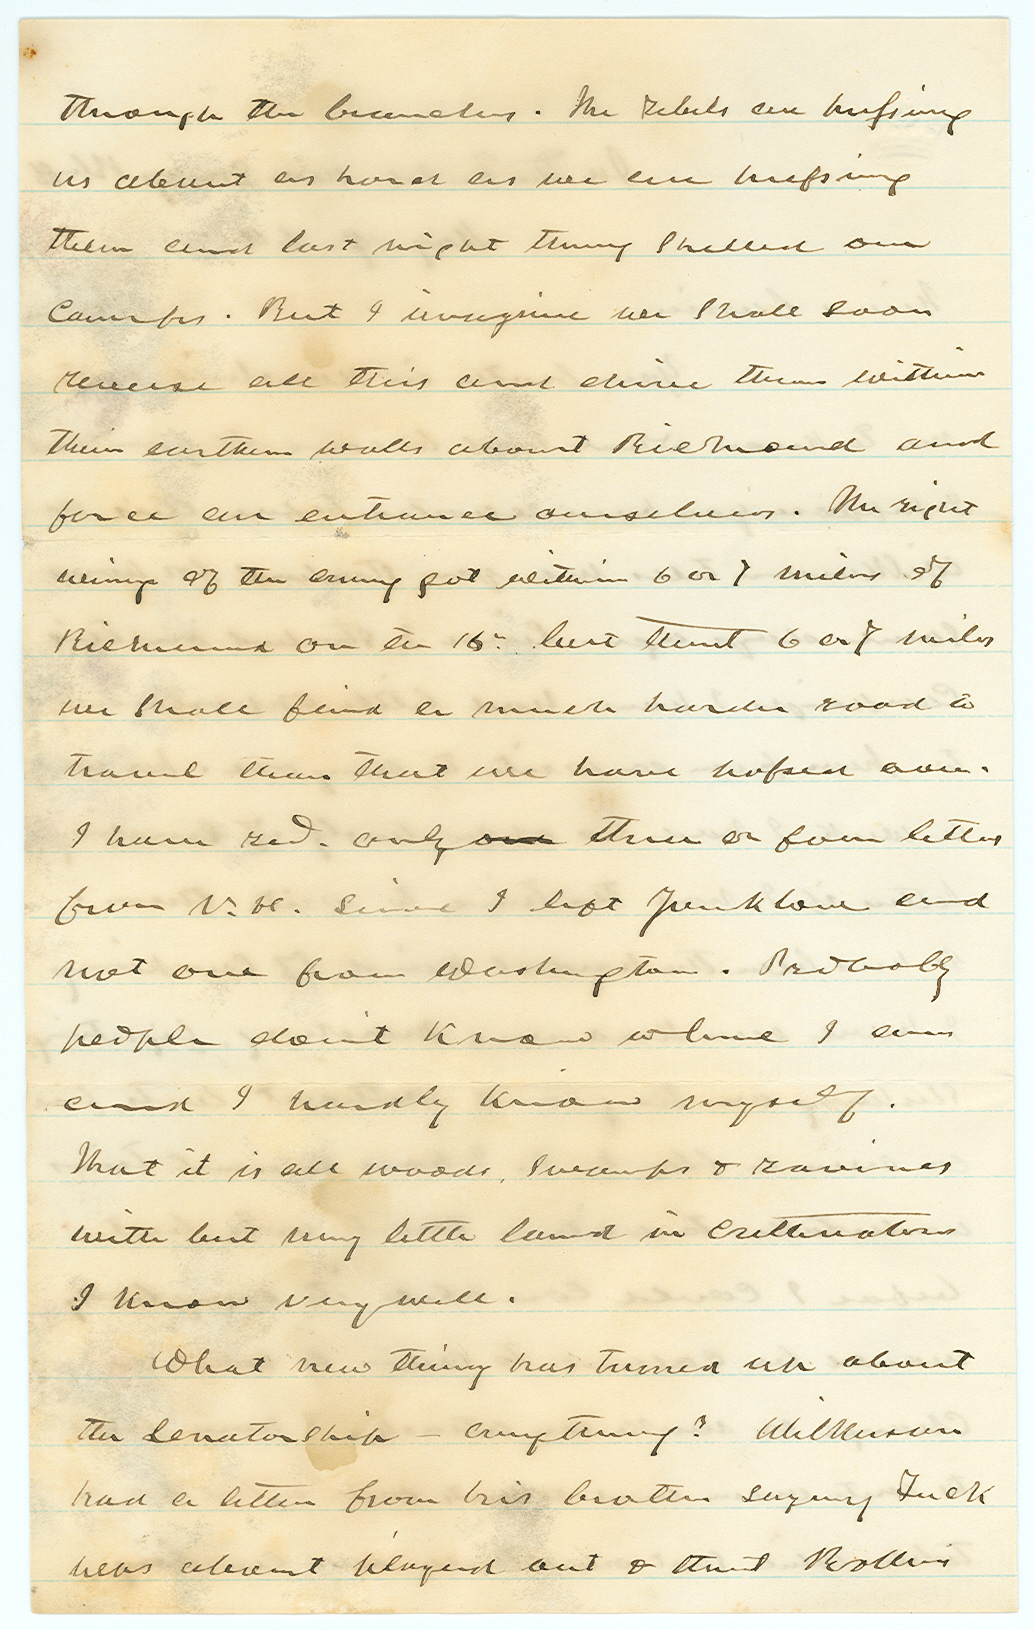 through the branches. The rebels are pressing
us about as hard as we are pressing
them and last night they shelled our
camps. But I imagine we shall soon
reverse all this and drive them within
their earthen walls about Richmond and
force an entrance ourselves. The right
wing of the army got within 6 or 7 miles of
Richmond on the 15th but that 6 or 7 miles
we shall find a much harder road to
travel than that we have passed over.
I have recd. only three or four letters
from N.H. since I left Yorktown and
not one from Washington. Probably
people don't know where I am
and I hardly know myself.
That it is all woods, swamps & ravines
with but very little land in cultivation
I know very well.
What new thing has turned up about
the Senatorship – anything? Wilkinson
had a letter from his brother saying Tuck
was about played out & that Rollins